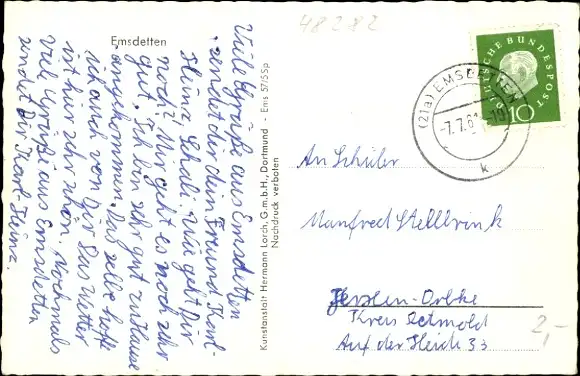 48282
Emsdetten
Viele Grüße aus Emsdetten
sendet dir dein Freund Karl-
Heinz Schali. Wie geht Dir
noch? Mir geht es noch sehr
gut. Ich bin sehr gut zuHause
angekommen. Das selbe hoffe
ich auch von Dir. Das Wetter
ist hier sehr schön. Nochmals
viel Grüße aus Emsdetten
sendet Dir Karl-Heinz.
Kunstanstalt Hermann Lorch, G.m.b.H., Dortmund - Ems 57/5Sp
Nachdruck verboten
DEUTSCHE BUNDESPOST
10
(21a) EMSDETTEN
-7.7.61
k
An Schüler
Manfred Stellbrink
Kreis Detmold
Auf der Heide 33
2,-